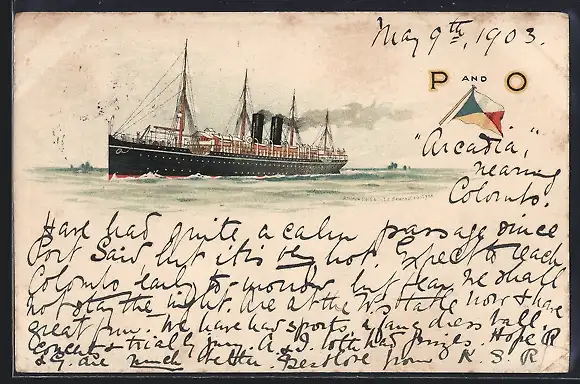 May 9th, 1903.
P AND O
"Arcadia,"
nearing
Colombo.
Have had quite a calm passage since
Port Said but it is very hot. Expect to reach
Colombo early to-morrow but fear we shall
not stay the night. Are at the Dr's table now & have
great fun. We have had sports, a fancy dress ball,
concerts & trially jury. A. & I. both had prizes. Hope R
& G. are much better. Best love from N. S. R